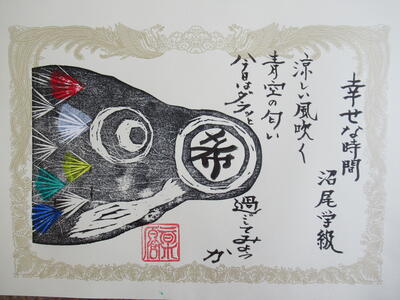 幸せな時間
沼尾学級
涼しい風吹く
青空の匂い
今日はダラッと
過ごしてみよう
か
希